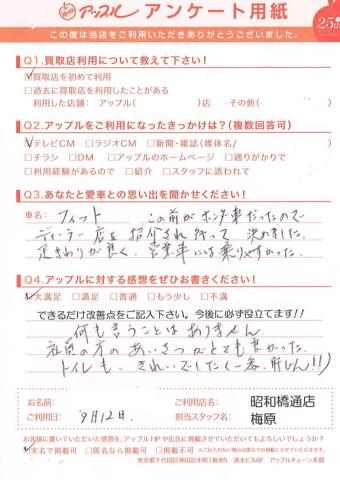 アップル アンケート用紙
25th
この度は当店をご利用いただきありがとうございました。
Q1.買取店利用について教えて下さい！
☑買取店を初めて利用
□過去に買取店を利用したことがある
利用した店舗：アップル(　　　)店　その他(　　　)
Q2.アップルをご利用になったきっかけは？(複数回答可)
☑テレビCM □ラジオCM □新聞・雑誌(媒体名/　　　)
□チラシ □DM □アップルのホームページ □通りがかりで
□利用経験があるので □紹介 □スタッフに誘われて
Q3.あなたと愛車との思い出を聞かせください！
車名： フィット この前がホンダ車だったので
ディーラー店を紹介され行って決めました。
足まわりが良く、営業車には乗りやすかった。
Q4.アップルに対する感想をぜひお書きください！
☑大満足 □満足 □普通 □もう少し □不満
できるだけ改善点をご記入下さい。今後に必ず役立てます！！
何も言うことはありません
社員の方のあいさつがとても良かった。
トイレも、きれいでした(一番、肝じん!!)
お名前：
ご利用日： 9月12日.
ご利用店名： 昭和橋通店
担当スタッフ名： 梅原
お客様に書いていただいた感想を、アップルHPや広告に掲載させていただいてもよろしいでしょうか？
☑実名で掲載可 □匿名なら掲載可 □掲載不可
東京都千代田区神田岩本町1番地5 清水ビル6F アップルチェーン本部